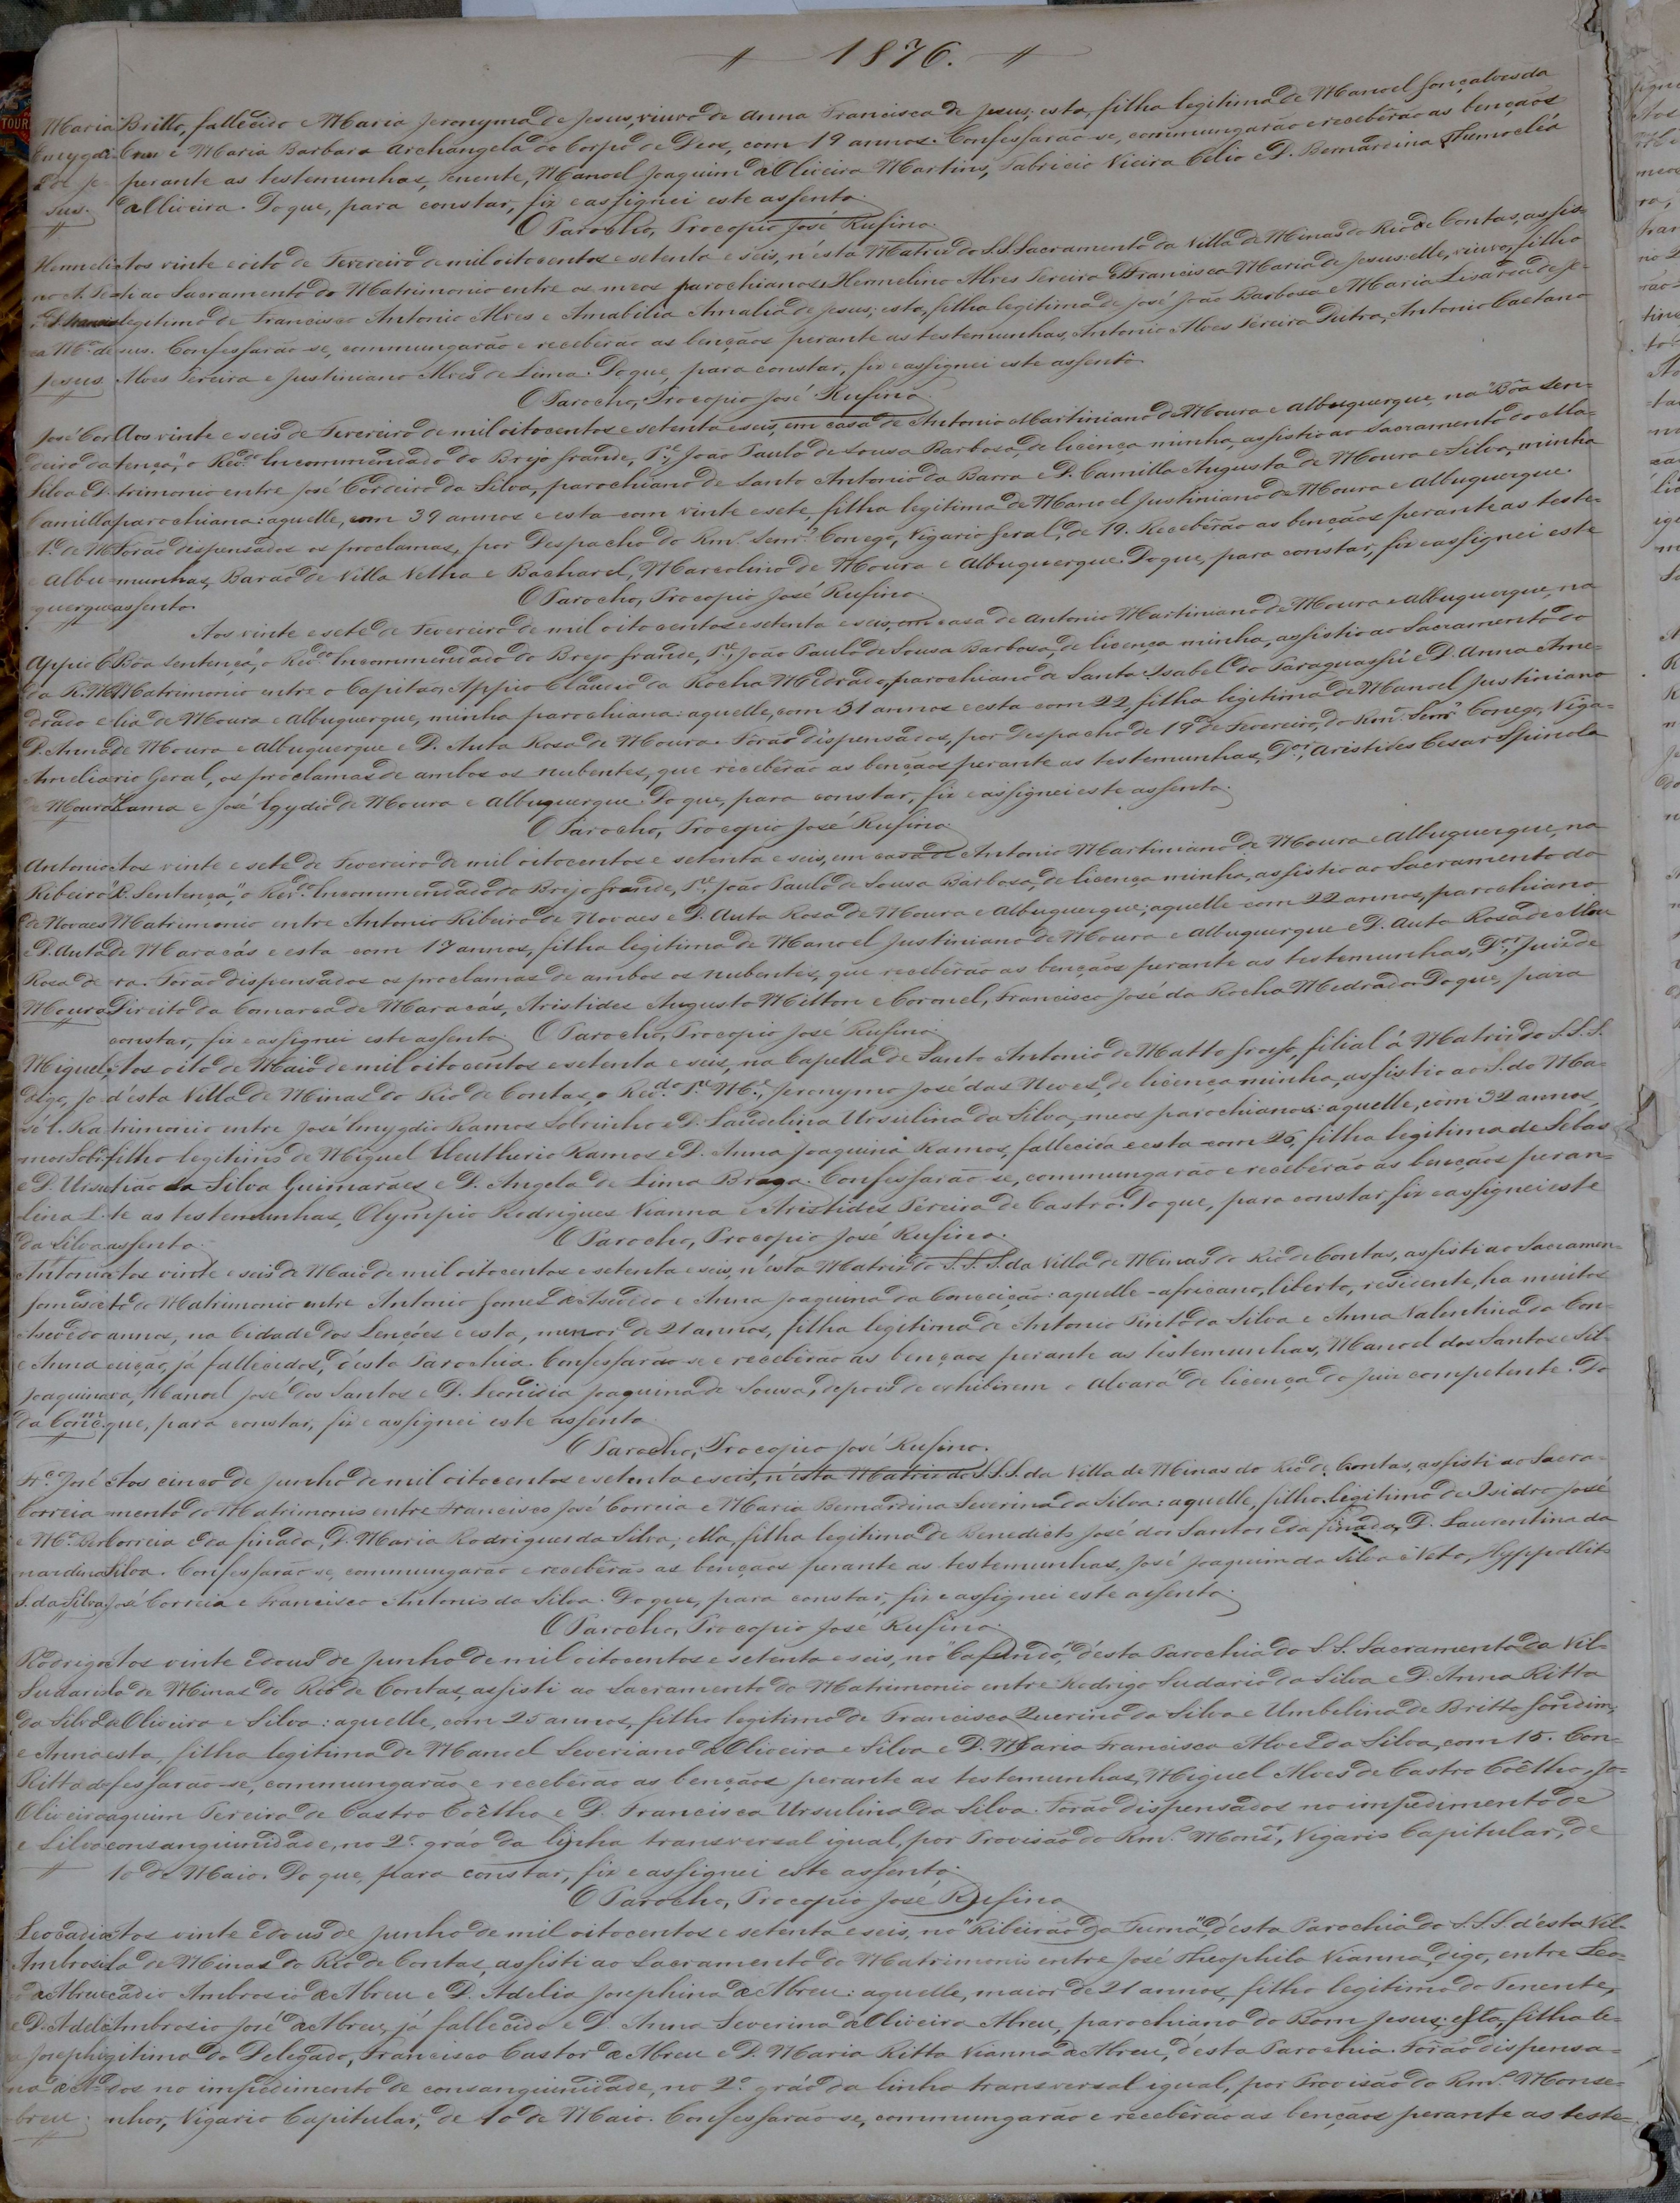 1876.
Maria Britto, fallecido e Maria Jeronyma de Jesus, viuvo de Anna Francisca de Jesus; esta, filha legitima de Manoel Gonçalves da
Emygdi Cruz e Maria Barbara Archangela do Corpo de Deos, com 19 annos. Confessarão-se, commungarão e recebêrão as bençãos
perante as testemunhas, Tenente, Manoel Joaquim d'Oliveira Martins, Fabricio Vieira Celio e D. Bernardina Themoclia
sus. d'Oliveira. Do que, para constar, fiz e assignei este assento.
O Parocho, Procopio José Rufino.
Hermeli Aos vinte e oito de Fevereiro de mil oitocentos e setenta e seis, n'ésta Matriz do S.S. Sacramento da Villa de Minas do Rio de Contas, assis-
no A. Pe ti ao Sacramento do Matrimonio entre os meos parochianos Hermelino Alves Pereira e D. Francisca Maria de Jesus: elle, viuvo, filho
legitimo de Francisco Antonio Alves e Amabilia Amalia de Jesus; esta, filha legitima de José João Barbosa e Maria Lisarda de Je-
ca Mª de sus. Confessarão-se, commungarão e recebêrão as bençãos perante as testemunhas, Antonio Alves Pereira Dutra, Antonio Caetano
Jesus Alves Pereira e Justiniano Alves de Lima. Do que, para constar, fiz e assignei este assento.
O Parocho, Procopio José Rufino.
José Cor Aos vinte e seis de Fevereiro de mil oitocentos e setenta e seis, em casa de Antonio Martiniano de Moura e Albuquerque, na "Bôa Sen-
deiro da tença", o Revdo. Encommendado do Brejo Grande, Pe., João Paulo de Sousa Barbosa, de licença minha, assistio ao Sacramento do Ma-
Silva e D. trimonio entre José Cordeiro da Silva, parochiano de Santo Antonio da Barra e D. Camilla Augusta de Moura e Silva, minha
Camilla parochiana: aquelle, com 39 annos e esta com vinte e sete, filha legitima de Manoel Justiniano de Moura e Albuquerque.
Aª. de M Forão dispensados os proclamas, por Despacho do Rmº. Senr. Conego, Vigario Geral, de 19. Recebêrão as bençãos perante as teste-
e Albu munhas, Barão de Villa Velha e Bacharel, Marcolino de Moura e Albuquerque. Do que, para constar, fiz e assignei este
querque assento. O Parocho, Procopio José Rufino.
Aos vinte e sete de Fevereiro de mil oitocentos e setenta e seis, em casa de Antonio Martiniano de Moura e Albuquerque, na
Appio C. "Bôa Sentença", o Revdo. Encommendado do Brejo Grande, Pe., João Paulo de Sousa Barbosa, de licença minha, assistio ao Sacramento do
da R. Me Matrimonio entre o Capitão, Appio Claudio da Rocha Medrado, parochiano de Santa Isabel do Paraguassú e D. Anna Ame-
drado e lia de Moura e Albuquerque, minha parochiana: aquelle, com 31 annos e esta com 22, filha legitima de Manoel Justiniano
D. Anna de Moura e Albuquerque e D. Auta Rosa de Moura. Forão dispensados, por Despacho de 19 de Fevereiro, do Rmº. Senr. Conego, Viga-
Amelia rio Geral, os proclamas de ambos os nubentes, que recebêrão as bençãos perante as testemunhas, Dor., Aristides Cesar Spinola
de Moura Zama e José Egydio de Moura e Albuquerque. Do que, para constar, fiz e assignei este assento.
O Parocho, Procopio José Rufino.
Antonio Aos vinte e sete de Fevereiro de mil oitocentos e setenta e seis, em casa de Antonio Martiniano de Moura e Albuquerque, na
Ribeiro "B. Sentença", o Revdo. Encommendado do Brejo Grande, Pe., João Paulo de Sousa Barbosa, de licença minha, assistio ao Sacramento do
de Novaes Matrimonio entre Antonio Ribeiro de Novaes e D. Auta Rosa de Moura e Albuquerque; aquelle com 22 annos, parochiano
e D. Auta de Maracás e esta com 17 annos, filha legitima de Manoel Justiniano de Moura e Albuquerque e D. Auta Rosa de Mou
Rosa de ra. Forão dispensados os proclamas de ambos os nubentes, que recebêrão as bençãos perante as testemunhas, Dor., Juiz de
Moura Direito da Comarca de Maracás, Aristides Augusto Milton e Coronel, Francisco José da Rocha Medrado. Do que, para
constar, fiz e assignei este assento. O Parocho, Procopio José Rufino.
Miguel, Aos oito de Maio de mil oitocentos e setenta e seis, na Capella de Santo Antonio de Matto Grosso, filial á Matriz do S.S.S.
digo, Jo d'ésta Villa de Minas do Rio de Contas, o Revdo. Pe. Me., Jeronymo José das Neves, de licença minha, assistio ao S. do Ma-
sé E. Ra trimonio entre José Emygdio Ramos Sobrinho e D. Laudelina Ursulina da Silva, meos parochianos: aquelle, com 32 annos,
mos Sobr. filho legitimo de Miguel Eleutherio Ramos e D. Anna Joaquina Ramos, fallecida e esta com 25, filha legitima de Sebas
e D. Ursu tião da Silva Guimarães e D. Angela de Lima Braga. Confessarão-se, commungarão e recebêrão as bençãos peran-
lina L. te as testemunhas, Olympio Rodrigues Vianna e Aristides Pereira de Castro. Do que, para constar, fiz e assignei este
da Silva assento. O Parocho, Procopio José Rufino.
Antonio Aos vinte e seis de Maio de mil oitocentos e setenta e seis, n'ésta Matriz do S.S.S. da Villa de Minas do Rio de Contas, assisti ao Sacramen-
Gomes d' to do Matrimonio entre Antonio Gomes d'Asevêdo e Anna Joaquina da Conceição: aquelle - africano, liberto, residente, ha muitos
Asevêdo annos, na Cidade dos Lençóes e esta, menor de 21 annos, filha legitima de Antonio Pinto da Silva e Anna Valentina da Con-
e Anna ceição, já fallecidos, d'ésta Parochia. Confessarão-se e recebêrão as bençãos perante as testemunhas, Manoel dos Santos e Sil-
Joaquina va, Manoel José dos Santos e D. Leonidia Joaquina de Sousa, depois de exhibirem o Alvará de licença do Juiz competente. Do
da Conc. que, para constar, fiz e assignei este assento.
O Parocho, Procopio José Rufino.
Frº. José Aos cinco de Junho de mil oitocentos e setenta e seis, n'ésta Matriz do S.S.S. da Villa de Minas do Rio de Contas, assisti ao Sacra-
Correia mento do Matrimonio entre Francisco José Correia e Maria Bernardina Severina da Silva: aquelle, filho legitimo de Isidro José
e Mª. Ber Correia e da finada, D. Maria Rodrigues da Silva; ella, filha legitima de Benedicto José dos Santos e da finada, D. Laurentina da
nardina Silva. Confessarão-se, commungarão e recebêrão as bençãos perante as testemunhas, José Joaquim da Silva e Neto, Hyppolito
S. da Silva José Correia e Francisco Antonio da Silva. Do que, para constar, fiz e assignei este assento.
O Parocho, Procopio José Rufino.
Rodrigo Aos vinte e dous de Junho de mil oitocentos e setenta e seis, no "Cafundó", d'ésta Parochia do S.S. Sacramento da Vil-
Sudario la de Minas do Rio de Contas, assisti ao Sacramento do Matrimonio entre Rodrigo Sudario da Silva e D. Anna Ritta
da Silva d'Oliveira e Silva: aquelle, com 25 annos, filho legitimo de Francisco Querino da Silva e Umbelina de Britto Gondim;
e Anna esta, filha legitima de Manoel Severiano d'Oliveira e Silva e D. Maria Francisca Alves da Silva, com 15. Con-
Ritta d' fessarão-se, commungarão e recebêrão as bençãos perante as testemunhas, Miguel Alves de Castro Coêlho, Jo-
Oliveira aquim Pereira de Castro Coêlho e D. Francisca Ursulina da Silva. Forão dispensados no impedimento de
e Silva consanguinidade, no 2º. gráo da linha transversal igual, por Provisão do Rmº. Monsr., Vigario Capitular, de
10 de Maio. Do que, para constar, fiz e assignei este assento.
O Parocho, Procopio José Rufino
Leocadio Aos vinte e dous de Junho de mil oitocentos e setenta e seis, no "Ribeirão da Furna", d'ésta Parochia do S.S.S. d'ésta Vil-
Ambrosio la de Minas do Rio de Contas, assisti ao Sacramento do Matrimonio entre José Theophilo Vianna, digo, entre Leo-
d'Abreu cadio Ambrosio d'Abreu e D. Adelia Josephina d'Abreu: aquelle, maior de 21 annos, filho legitimo do Tenente,
e D. Adeli Ambrosio José d'Abreu, já fallecido e D. Anna Severina d'Oliveira Abreu, parochiano do Bom Jesus; esta, filha le-
a Josephi gitima do Delegado, Francisco Castor d'Abreu e D. Maria Ritta Vianna d'Abreu, d'ésta Parochia. Forão dispensa-
na d'A- dos no impedimento de consanguinidade, no 2º. gráo da linha transversal igual, por Provisão do Rmº. Monse-
breu. nhor, Vigario Capitular, de 10 de Maio. Confessarão-se, commungarão e recebêrão as bençãos perante as teste-